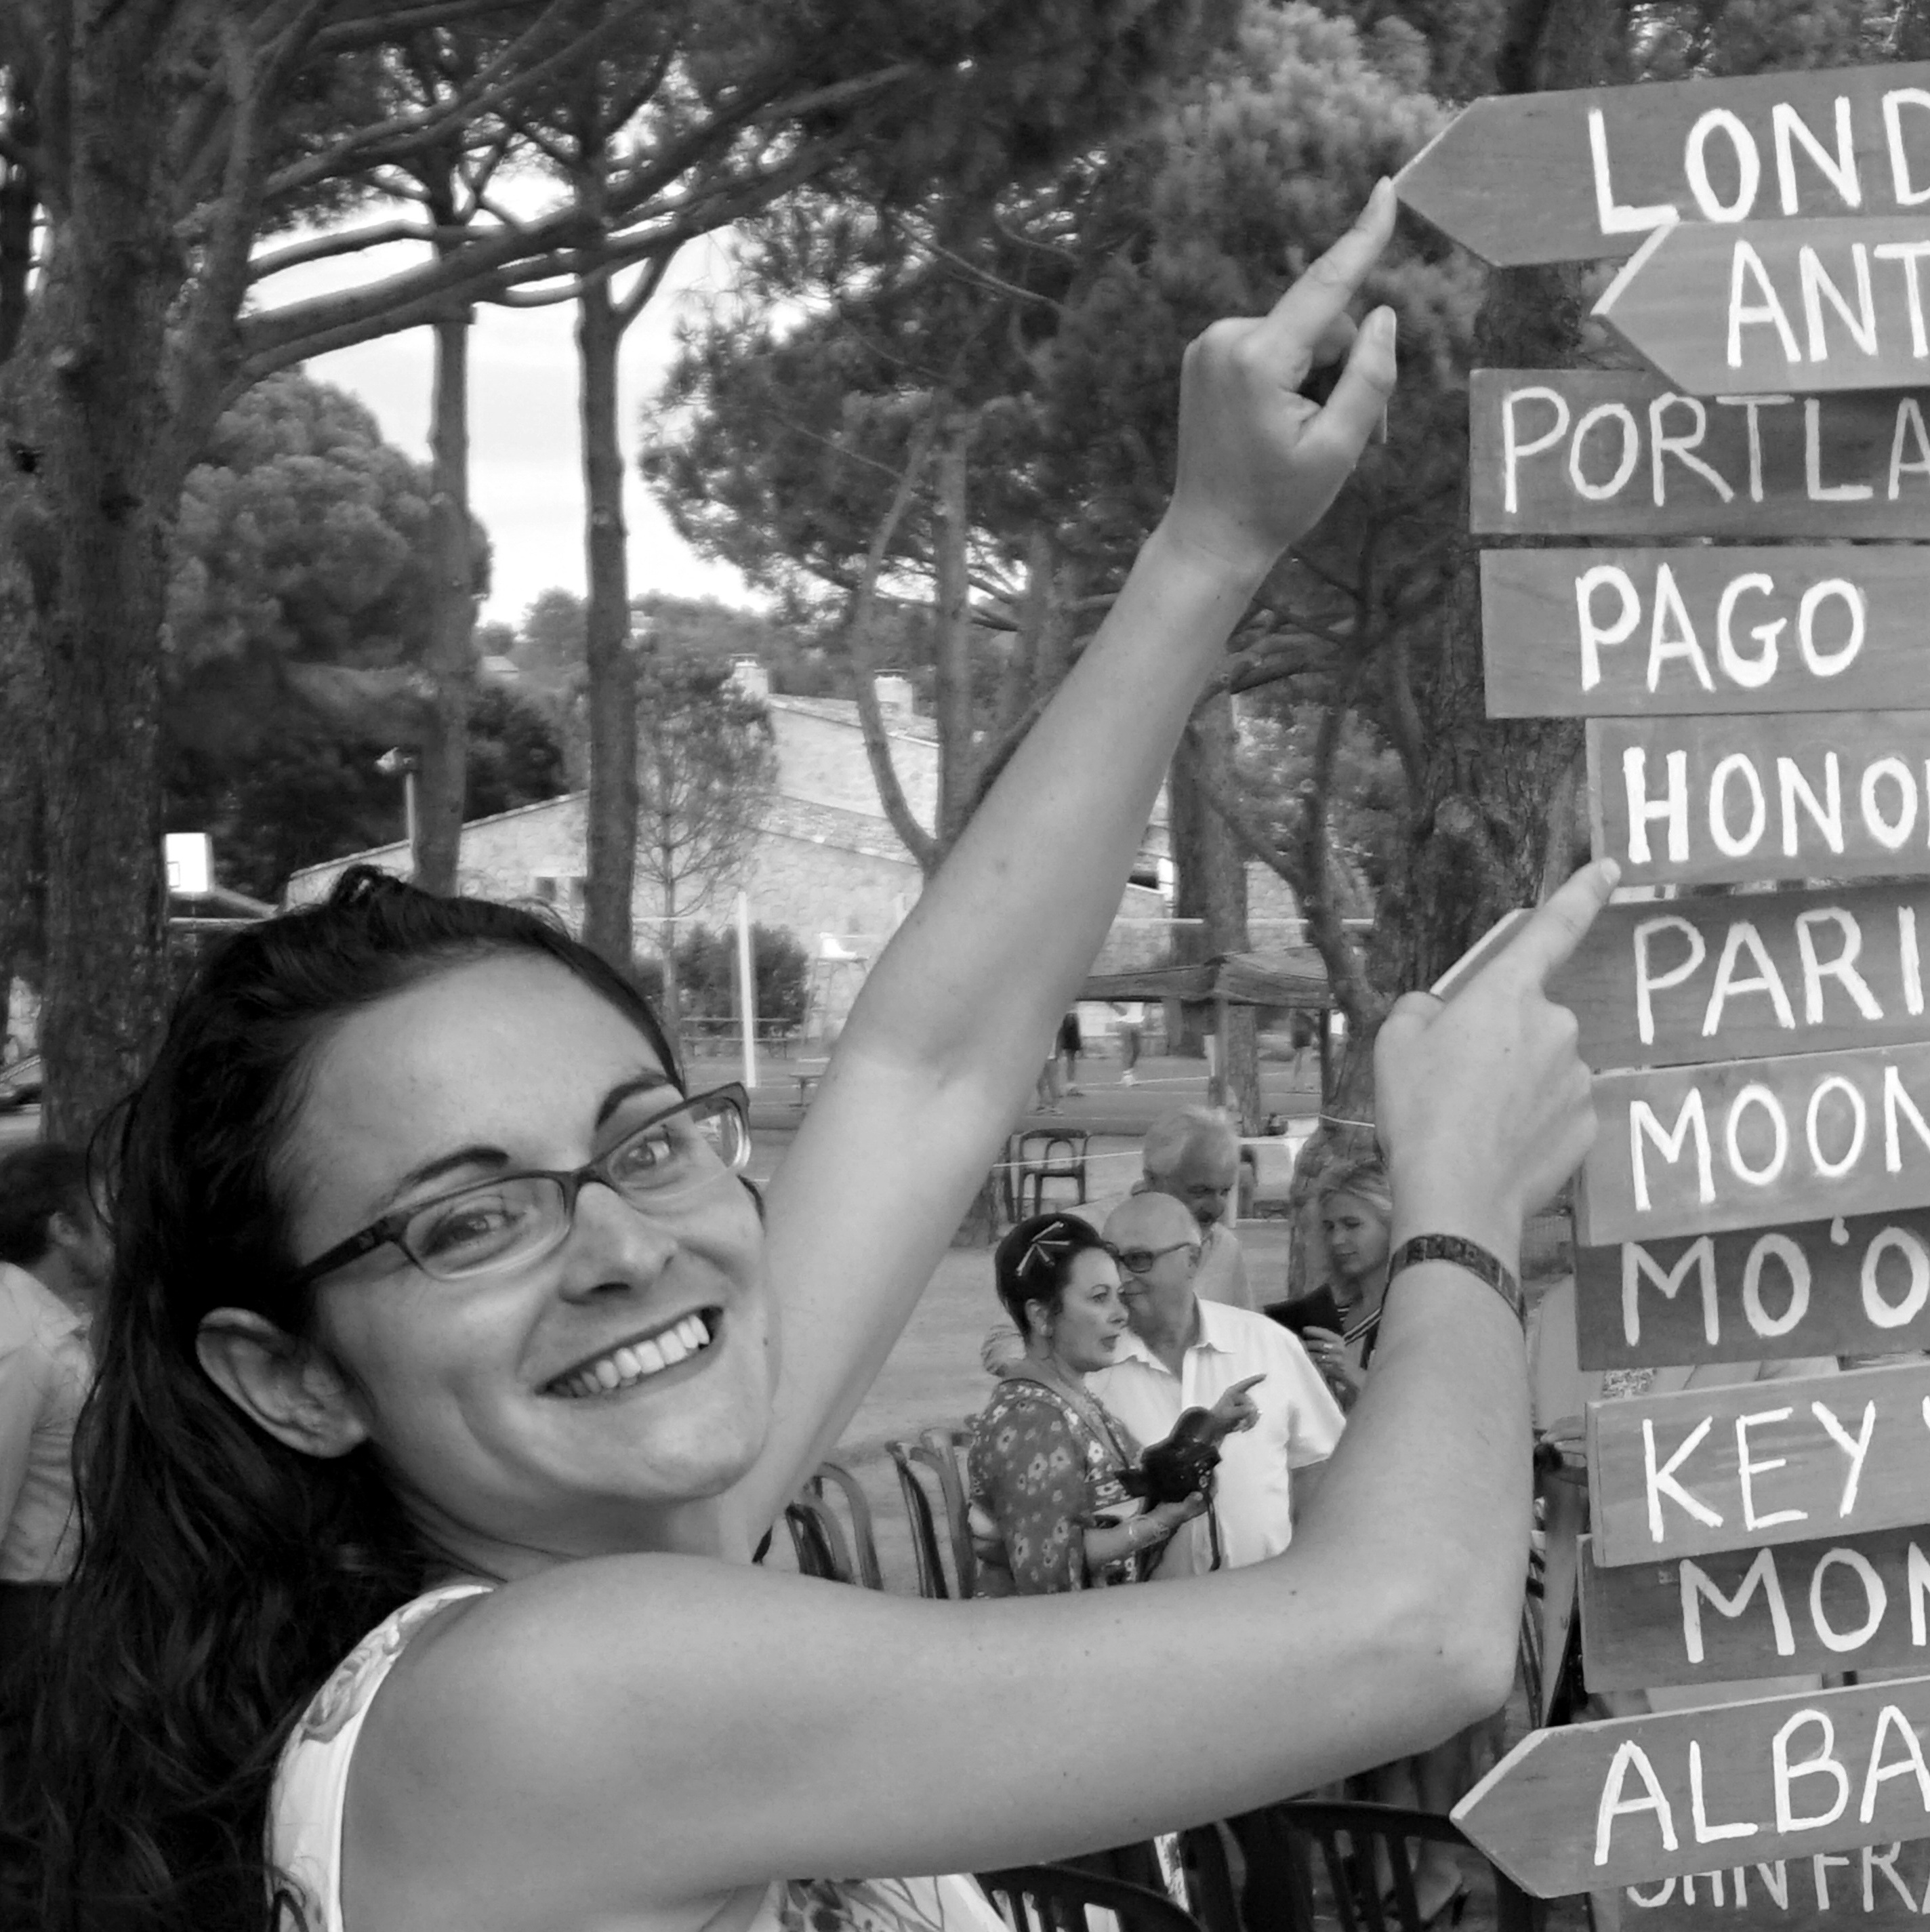 LOND
ANT
PORTLA
PAGO
HONO
PARI
MOON
MO'O
KEY
MON
ALBA
SAN FRA